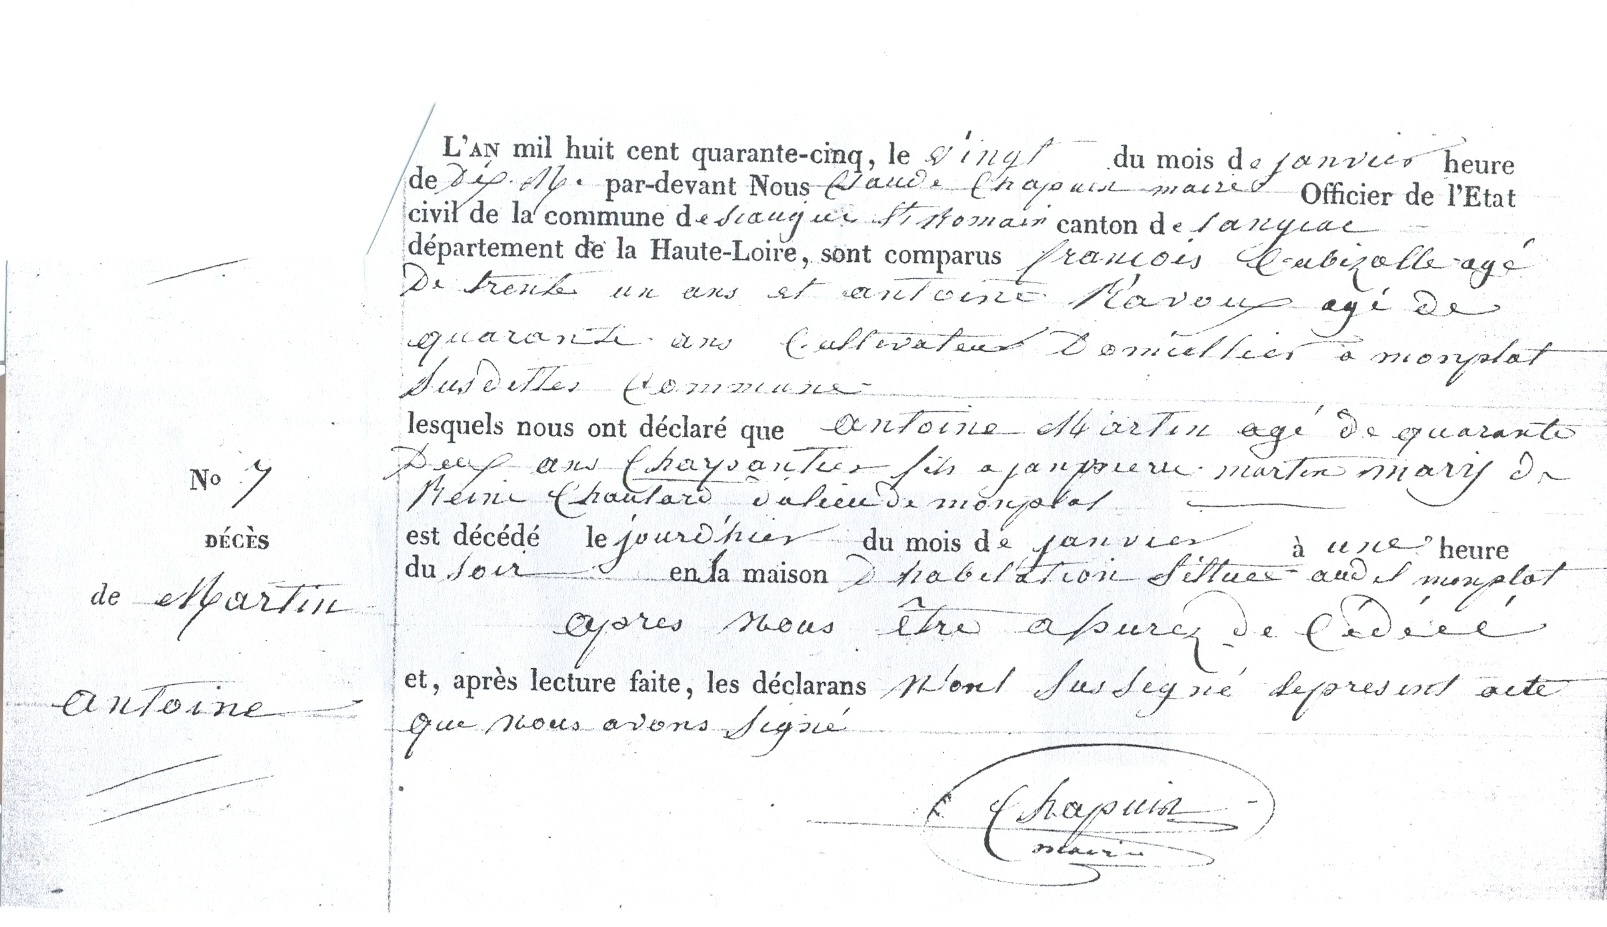 L'AN mil huit cent quarante-cinq, le vingt du mois de janvier heure
de Dix. M. par-devant Nous Claude Chapuis maire Officier de l'Etat
civil de la commune de siaugue St Romain canton de Langeac
département de la Haute-Loire, sont comparus francois Cubizolle agé
De trente un ans et antoine Ravoux agé de
quarante ans Cultivateur Domicilier a monplot
Susdittes Commune
lesquels nous ont déclaré que antoine Martin agé de quarante
Deux ans Charpantier fils a janpierre martin mary de
Reine Chautard du lieu de monplot
No 7
DÉCÈS
de Martin
antoine
est décédé le jourd'hier du mois de janvier à une heure
du soir en la maison D'habitation Sittuée audit monplot
apres nous être assurez de Cédécé
et, après lecture faite, les déclarans n'ont sussigné le present acte
que nous avons signé
Chapuis
maire